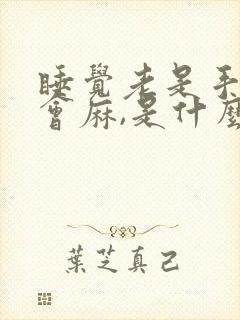 睡覺老是手
會麻,是什麼
葉芝真己